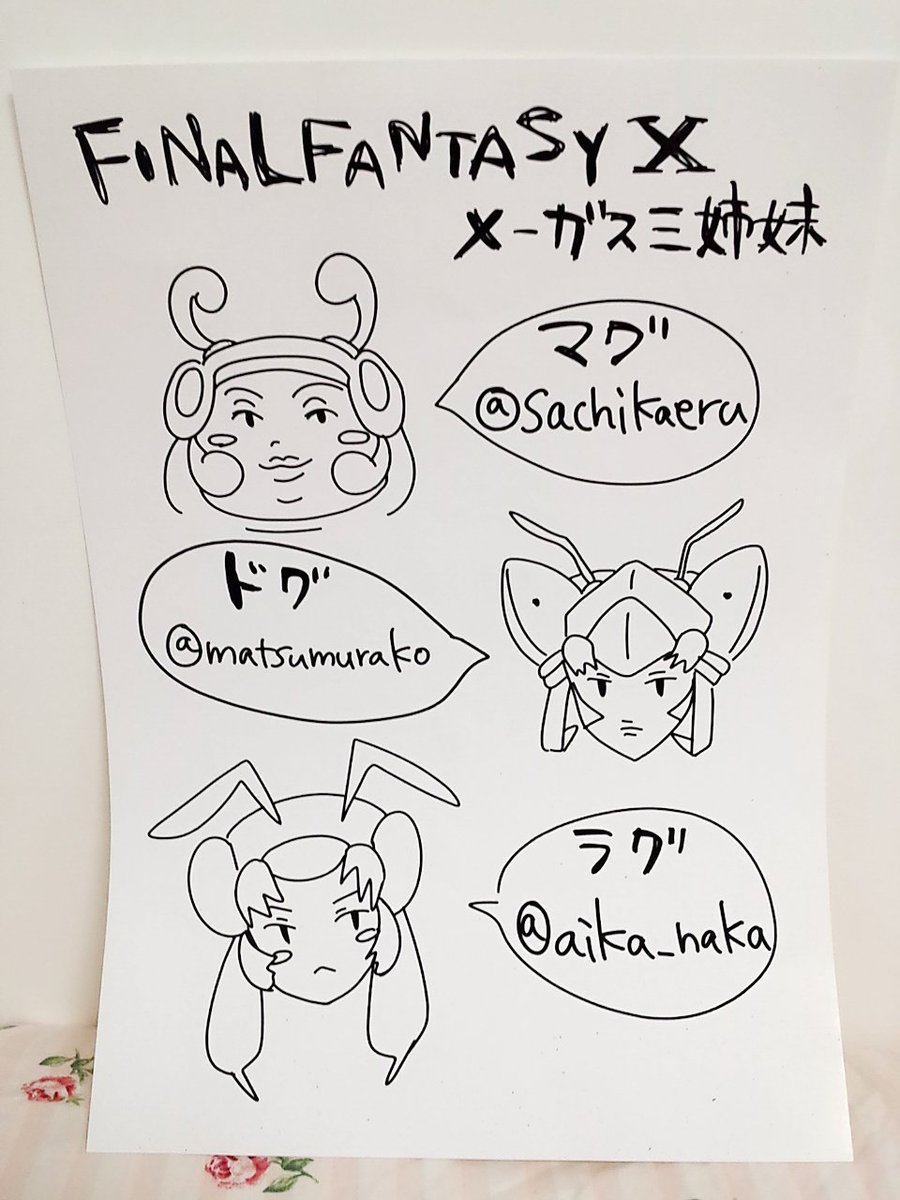 FINAL FANTASY X
メーガス三姉妹
マグ
@sachikaeru
ドグ
@matsumurako
ラグ
@aika_naka